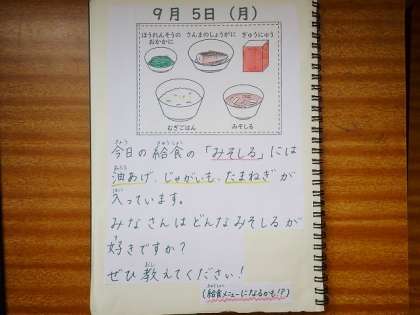 9月5日（月）
ほうれんそうの
おかかに
さんまのしょうがに
ぎゅうにゅう
むぎごはん
みそしる
今日の給食の「みそしる」には
油あげ、じゃがいも、たまねぎが
入っています。
みなさんはどんなみそしるが
好きですか？
ぜひ教えてください！
（給食メニューになるかも!?）